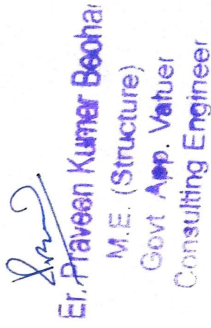 Er. Praveen Kumar Beohar
M.E. (Structure)
Govt App. Valuer
Consulting Engineer